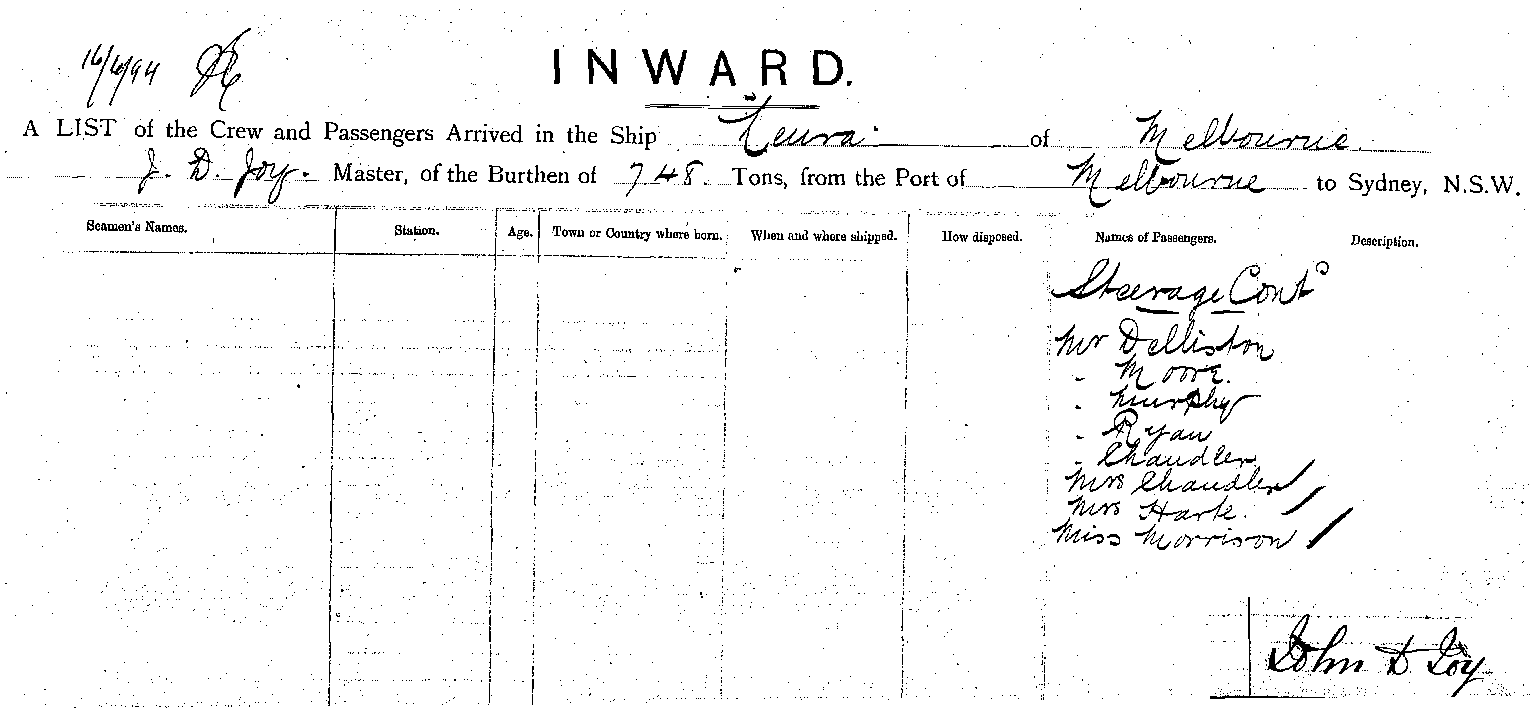 16/6/94
INWARD.
A LIST of the Crew and Passengers Arrived in the Ship Leura of Melbourne
J. D. Joy. Master, of the Burthen of 748. Tons, from the Port of Melbourne to Sydney, N.S.W.
Seamen's Names. Station. Age. Town or Country where born. When and where shipped. How disposed. Names of Passengers. Description.
Steerage Contd
Mr Delliston
" Moore.
" Murphy
" Ryan
" Chandler
Mrs Chandler
Mrs Harte.
Miss Morrison
John D Joy